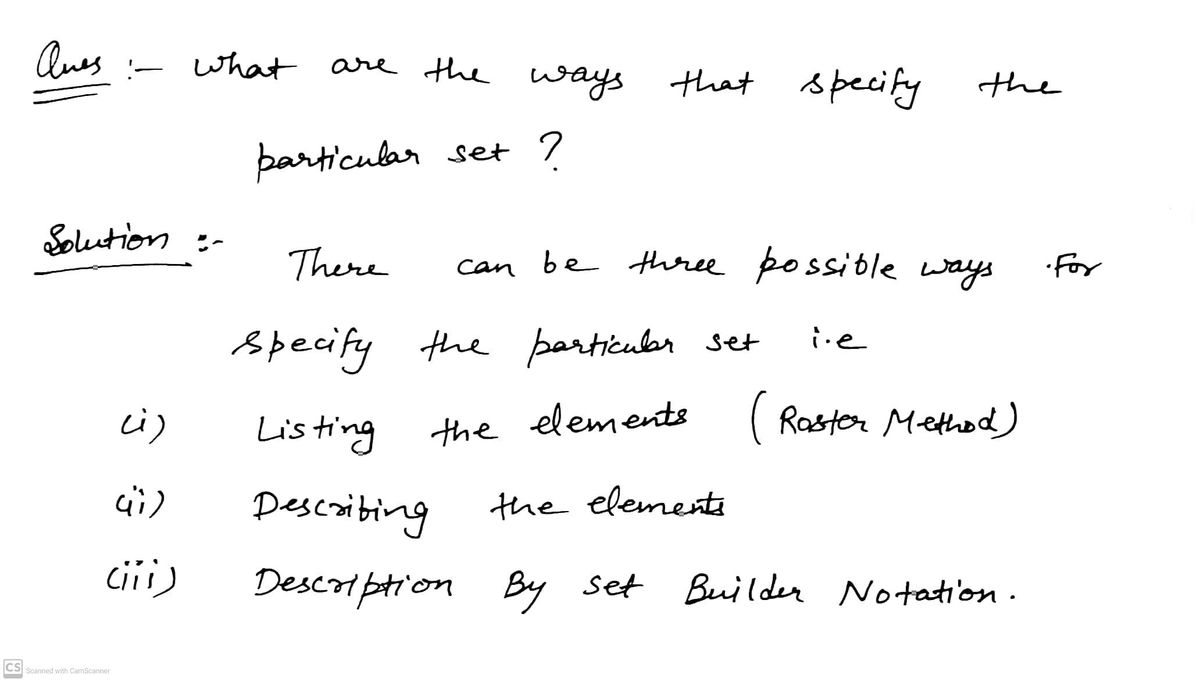 Ques :- What are the ways that specify the
particular set ?
Solution :-
There can be three possible ways . For
specify the particular set i.e
(i) Listing the elements (Roster Method)
(ii) Describing the elements
(iii) Description By set Builder Notation.
CS Scanned with CamScanner